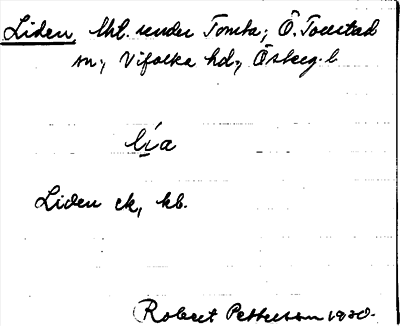 Liden, lht. under Tomta; Ö. Tollstad
sn., Vifolka hd., Östergl.
lía
Liden ek, kb.
Robert Pettersson 1930.